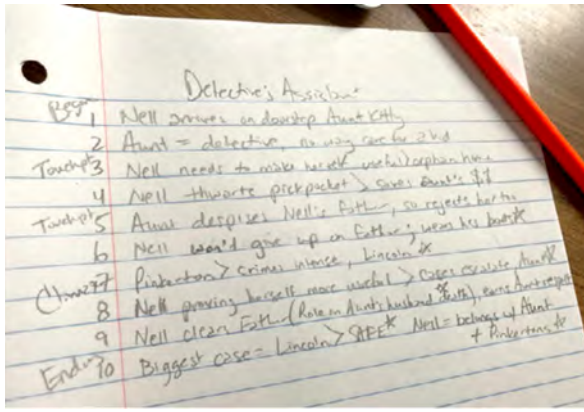 Detective's Assistant
Beg 1 Nell arrives on doorstep Aunt Kitty
2 Aunt = detective, no way care for a kid
Touchpt 3 Nell needs to make herself useful/orphan home
4 Nell thwarts pickpocket > saves Aunt's $$
Touchpt 5 Aunt despises Nell's Father, so rejects her too
6 Nell won't give up on Father; wears his boots*
7 Pinkerton > crimes intense, Lincoln *
8 Nell proving herself more useful > cases escalate Aunt*
9 Nell clears Father (Role in Aunt's husband's death), earns Aunt respect
Ending 10 Biggest case = Lincoln > SAFE* Nell = belongs w/ Aunt
+ Pinkertons *